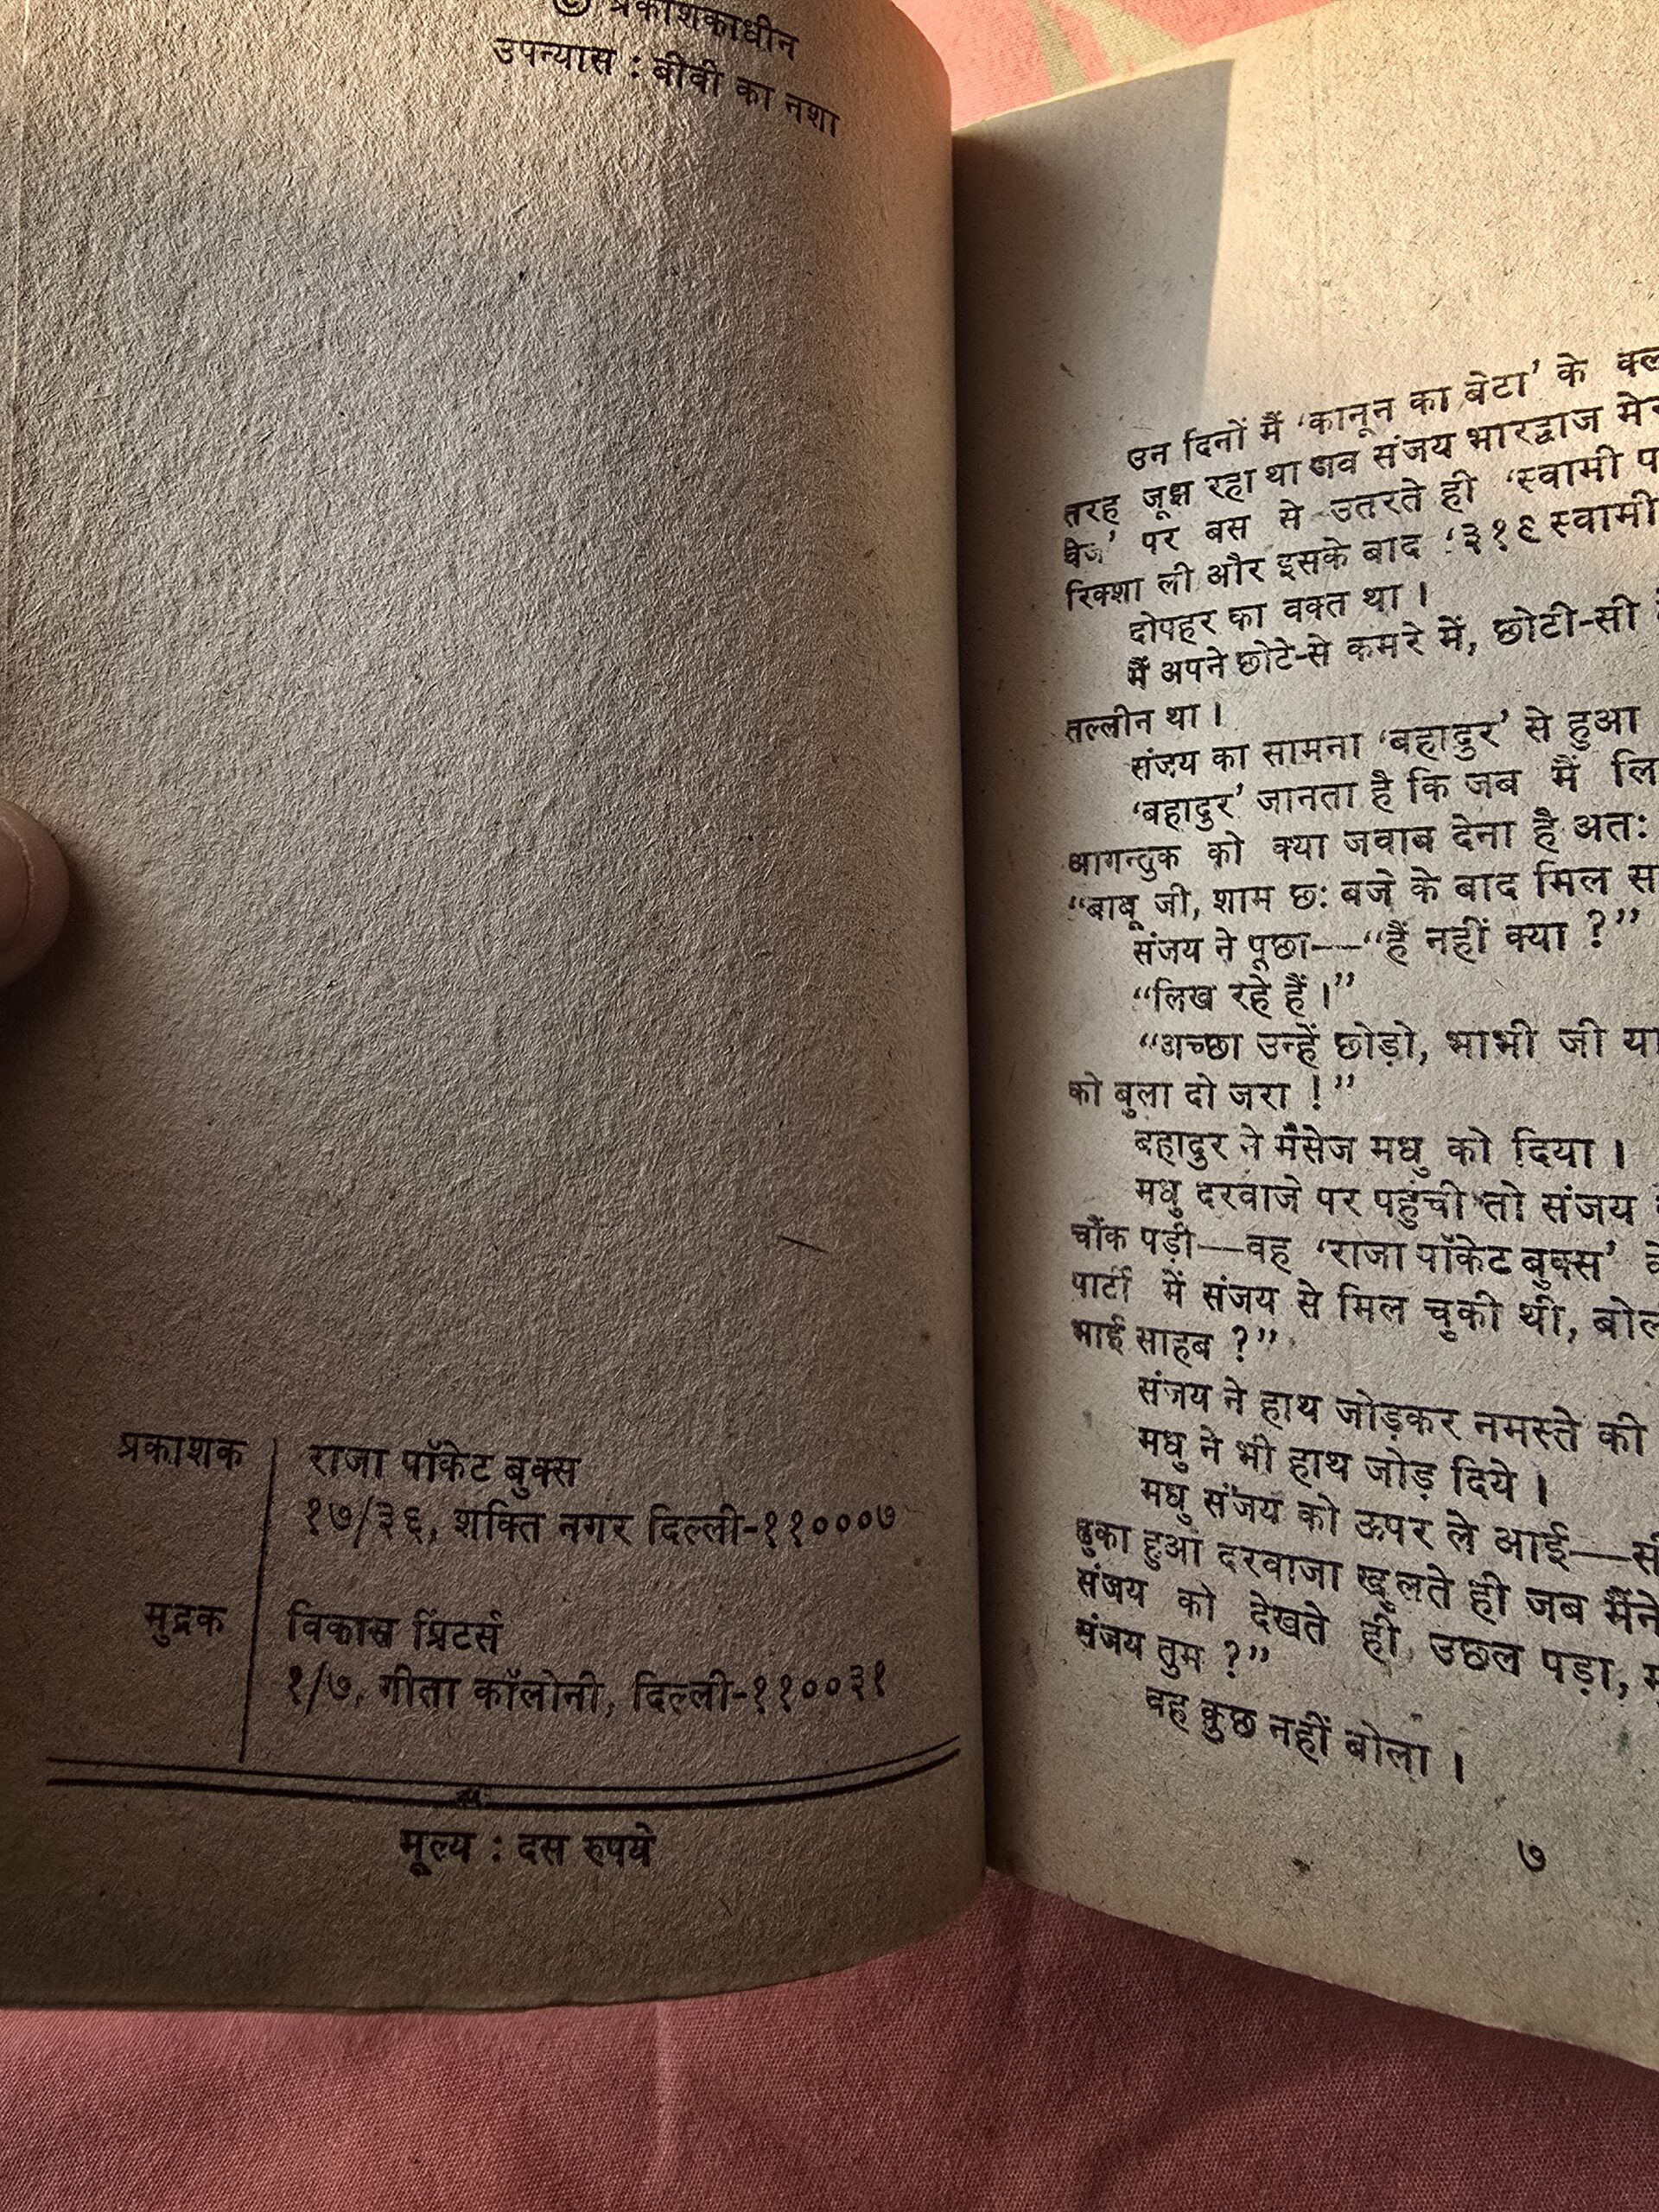 © प्रकाशकाधीन
उपन्यास : बीवी का नशा
प्रकाशक
राजा पॉकेट बुक्स
१७/३६, शक्ति नगर दिल्ली-११०००७
मुद्रक
विकास प्रिंटर्स
१/७, गीता कॉलोनी, दिल्ली-११००३१
मूल्य : दस रुपये
उन दिनों मैं ‘कानून का बेटा’ के
तरह जूझ रहा था जब संजय भारद्वाज
पर बस से उतरते ही ‘स्वामी
रिक्शा ली और इसके बाद ‘३१९ स्वामी
दोपहर का वक्त था ।
मैं अपने छोटे-से कमरे में, छोटी-सी
तल्लीन था ।
संजय का सामना ‘बहादुर’ से हुआ
‘बहादुर’ जानता है कि जब मैं
आगन्तुक को क्या जवाब देना है अतः
“बाबू जी, शाम छः बजे के बाद मिल
संजय ने पूछा—“हैं नहीं क्या ?”
“लिख रहे हैं ।”
“अच्छा उन्हें छोड़ो, भाभी जी
को बुला दो जरा !”
बहादुर ने मैसेज मधु को दिया ।
मधु दरवाजे पर पहुंची तो संजय
चौंक पड़ी—वह ‘राजा पॉकेट बुक्स’
पार्टी में संजय से मिल चुकी थी,
भाई साहब ?”
संजय ने हाथ जोड़कर नमस्ते की
मधु ने भी हाथ जोड़ दिये ।
मधु संजय को ऊपर ले आई—
ढुका हुआ दरवाजा खुलते ही जब मैंने
संजय को देखते ही उछल पड़ा,
संजय तुम ?”
वह कुछ नहीं बोला ।
७